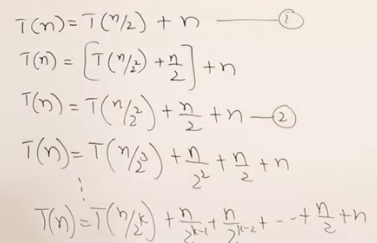 T(n) = T(n/2) + n —— ①
T(n) = [T(n/2²) + n/2] + n
T(n) = T(n/2²) + n/2 + n — ②
T(n) = T(n/2³) + n/2² + n/2 + n
T(n) = T(n/2ᵏ) + n/2ᵏ⁻¹ + n/2ᵏ⁻² + - - + n/2 + n